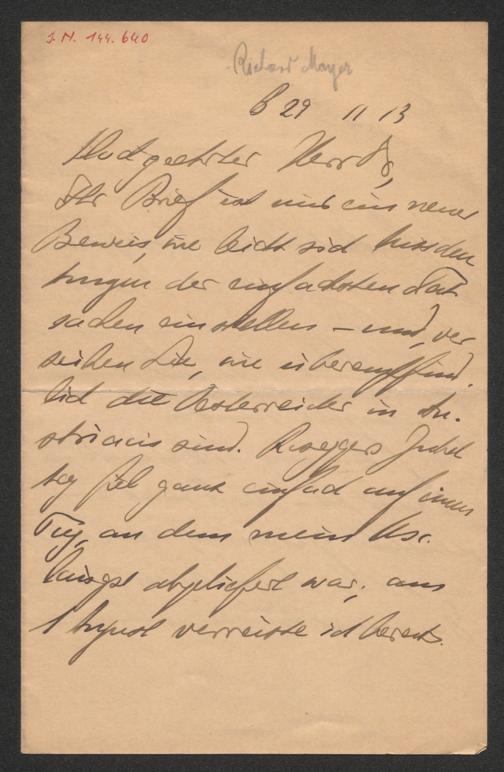 J. N. 144.640
Richard Mayer
B 29 11 13
Hochgeehrter Herr Dr,
Ihr Brief ist mir ein neuer
Beweis, wie leicht sich Missdeu
tungen der einfachsten Tat
sachen einstellen – und, ver
zeihen Sie, wie überempfind.
lich die Oesterreicher in Au.
striacis sind. Roseggers Jubel
tag fiel ganz einfach auf einen
Tag, an dem mein Msc.
längst abgeliefert war; am
1 August verreiste ich bereits.